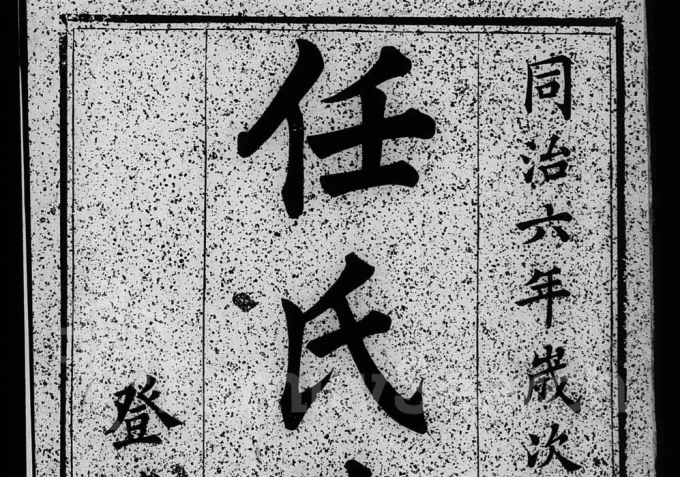 同治六年歲次
任氏
登